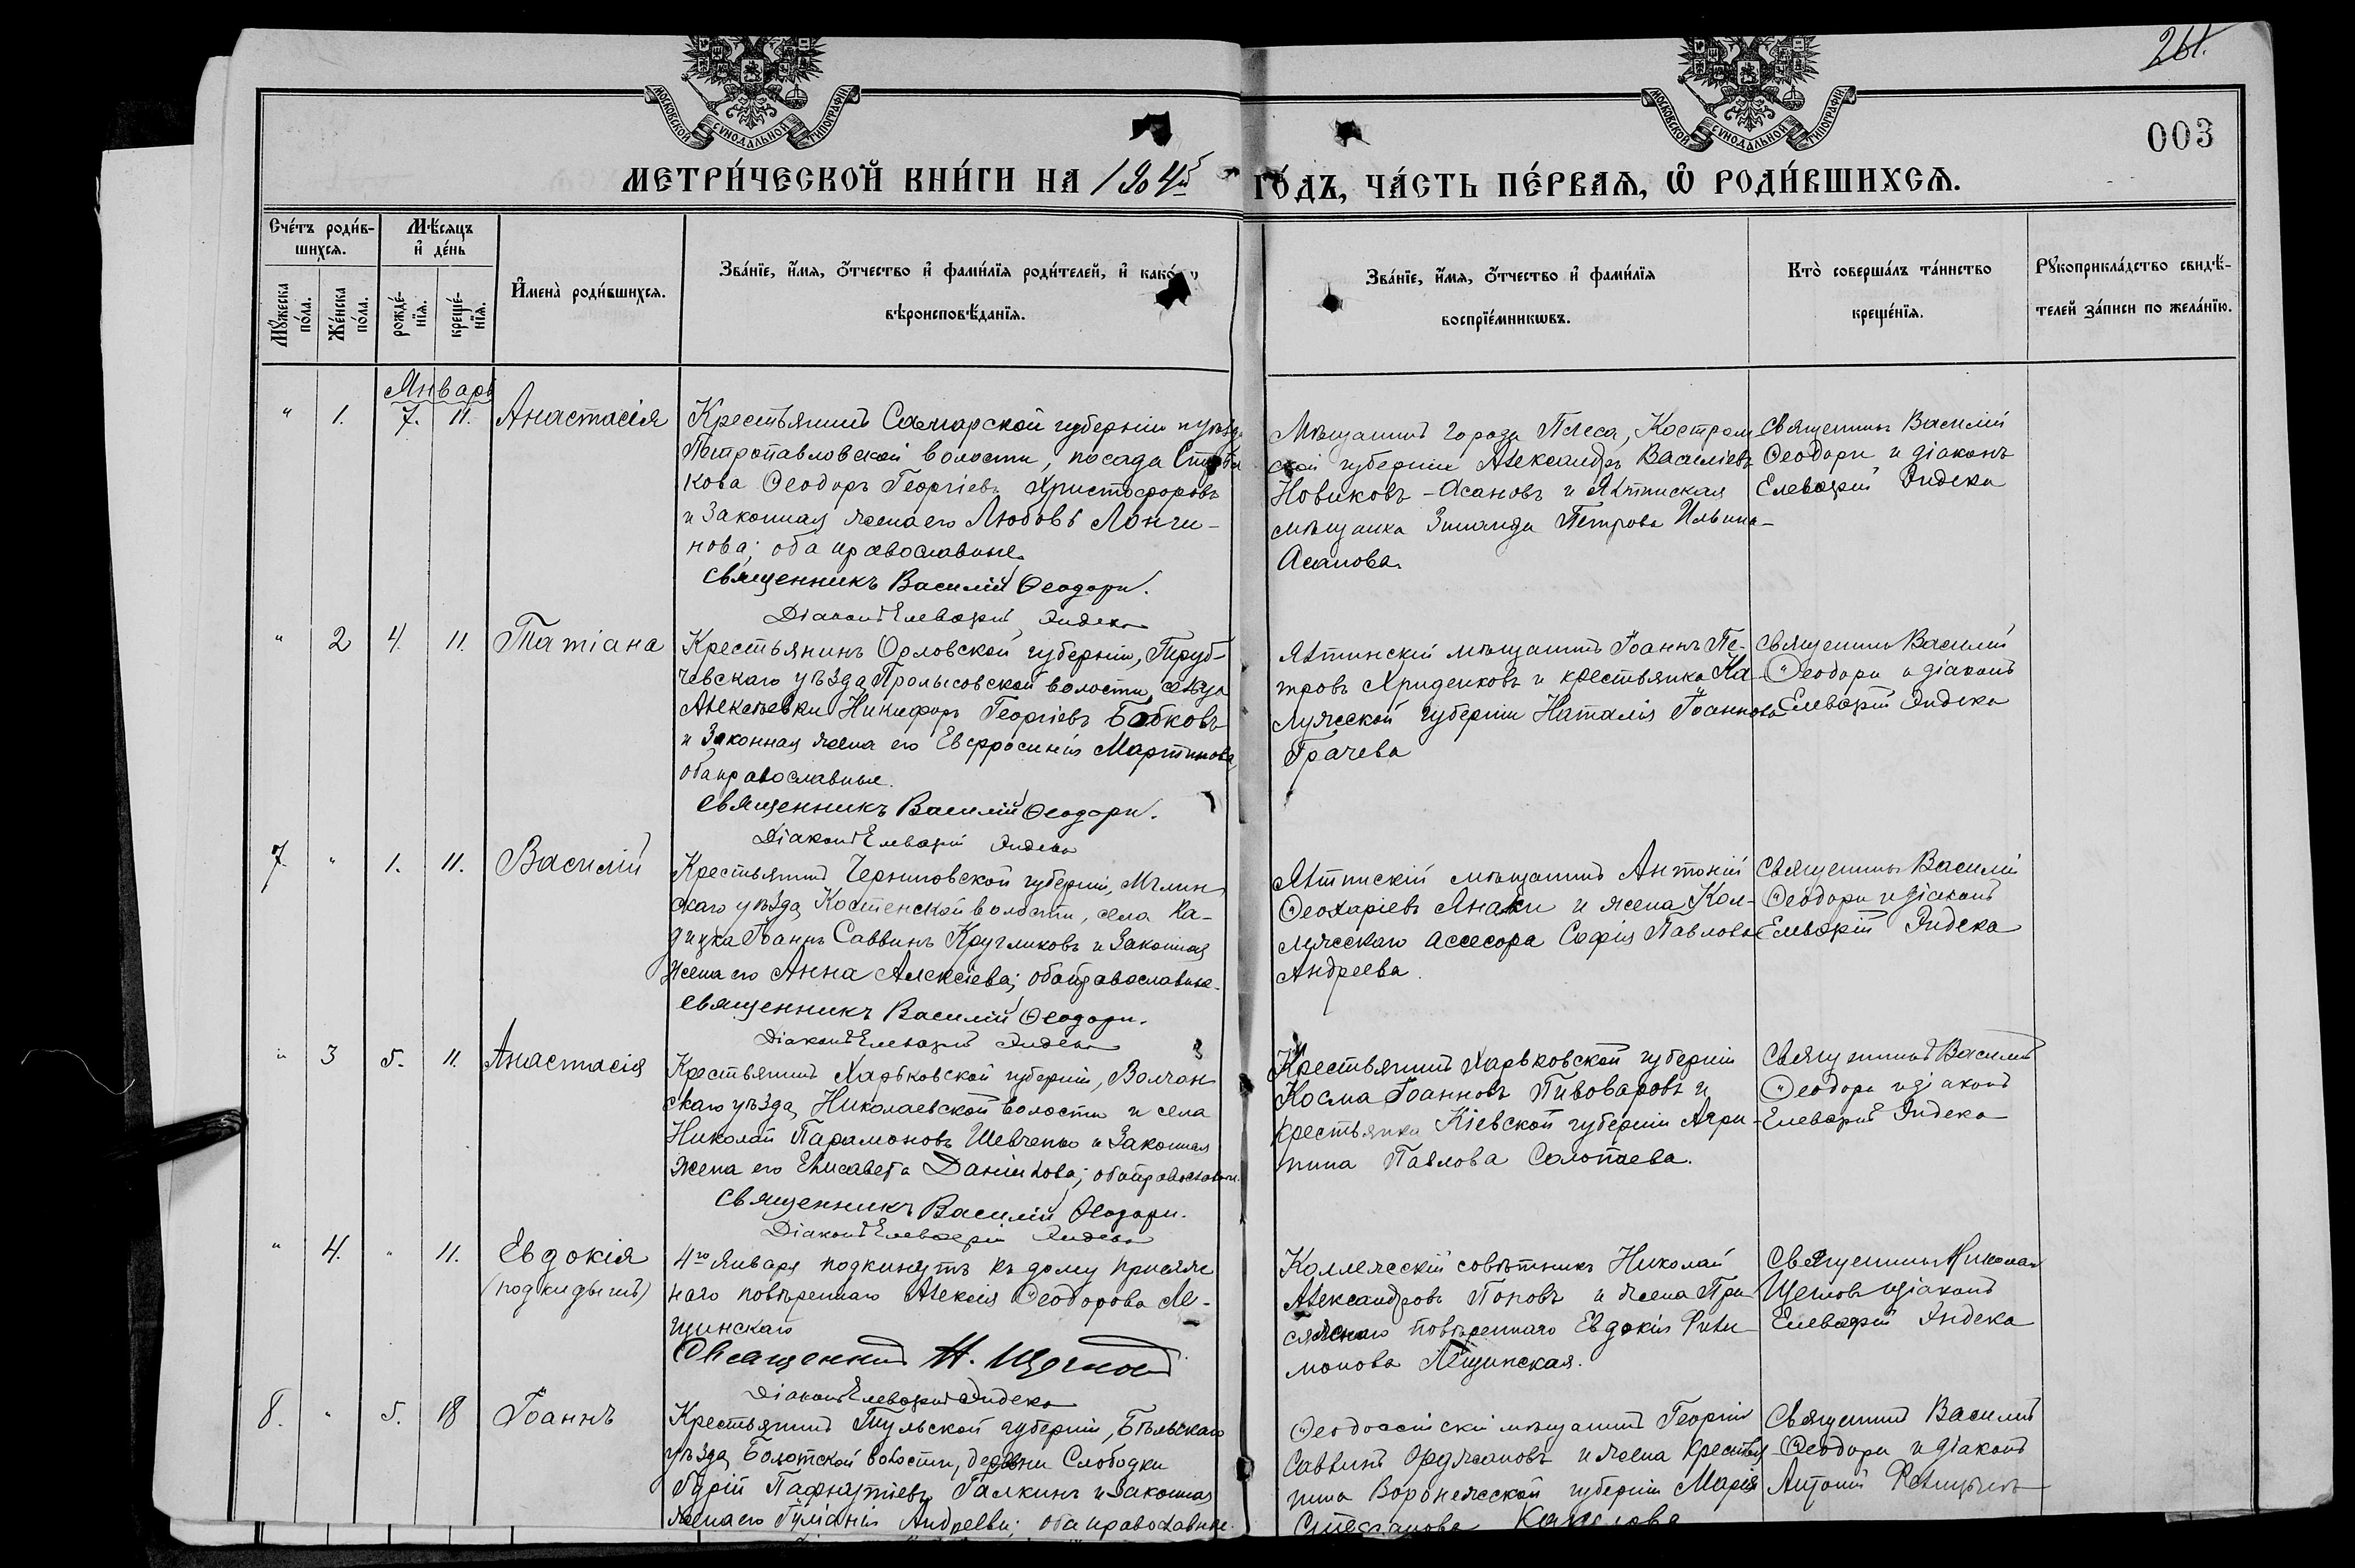 261.
003
МОСКОВСКОЙ СУНОДАЛЬНОЙ ТИПОГРАФІИ
МОСКОВСКОЙ СУНОДАЛЬНОЙ ТИПОГРАФІИ
МЕТРИ́ЧЕСКОЙ КНИ́ГИ НА 1904й ГО́ДЪ, ЧА́СТЬ ПЕ́РВАЯ, Ѡ҃ РОДИ́ВШИХСЯ.
Сче́тъ роди́в-
шихся.
Мꙋ́жеска по́ла.
Же́нска по́ла.
Мѣ́сяцъ и҆ де́нь
рожде́-
нїя.
креще́-
нїя.
И҆мена̀ роди́вшихся.
Зва́нїе, и҆́мя, ѻ҆́тчество и҆ фами́лїя роди́телей, и҆ како́
вѣроисповѣ́данїя.
Зва́нїе, и҆́мя, ѻ҆́тчество и҆ фами́лїя
воспрїе́мникѡвъ.
Кто̀ соверша́лъ та́инство
креще́нїя.
Рꙋкоприкла́дство свидѣ́-
телей за́писи по жела́нїю.
Январь
" 1. 7. 11. Анастасія
Крестьянинъ Самарской губерніи и уѣзда
Петропавловской волости, посада
кова Ѳеодоръ Георгіевъ Христофоровъ
и законная жена его Любовь Лонги-
нова; оба православные.
Священникъ Василій Ѳеодори.
Діаконъ Елевѳерій Индека
Мѣщанинъ города Плеса, Костром
ской губерніи Александръ Василіевъ
Новиковъ-Асановъ и Ялтинская
мѣщанка Зинаида Петрова Ильина-
Асанова.
Священникъ Василій
Ѳеодори и діаконъ
Елевѳерій Индека
" 2 4. 11. Татіана
Крестьянинъ Орловской губерніи, Труб-
чевскаго уѣзда Пролысовской волости, села
Алексѣевки Никифоръ Георгіевъ Бобковъ
и законная жена его Евфросинія Мартинова
оба православные.
Священникъ Василій Ѳеодори.
Діаконъ Елевѳерій Индека
Ялтинскій мѣщанинъ Іоаннъ Пе-
тровъ Хриденковъ и крестьянка Ка-
лужской губерніи Наталія Іоаннова
Грачева
Священникъ Василій
Ѳеодори и діаконъ
Елевѳерій Индека
7. " 1. 11. Василій
Крестьянинъ Черниговской губерніи, Мглин
скаго уѣзда, Костенской волости, села Ка-
Іоаннъ Саввинъ Кругликовъ и законная
жена его Анна Алексіева; оба православные.
Священникъ Василій Ѳеодори.
Діаконъ Елевѳерій Индека
Ялтинскій мѣщанинъ Антоній
Ѳеохаріевъ Янаки и жена Кол-
лежскаго ассесора Софія Павлова
Андреева.
Священникъ Василій
Ѳеодори и діаконъ
Елевѳерій Индека
" 3 5. 11. Анастасія
Крестьянинъ Харьковской губерніи, Волчан
скаго уѣзда, Николаевской волости и села
Николай Парамоновъ Шевченко и законная
жена его Елисавета Даніилова; оба православн.
Священникъ Василій Ѳеодори.
Діаконъ Елевѳерій Индека
Крестьянинъ Харьковской губерніи
Косма Іоанновъ Пивоваровъ и
крестьянка Кіевской губерніи Агри-
пина Павлова
Священникъ Василій
Ѳеодори и діаконъ
Елевѳерій Индека
" 4. " 11. Евдокія
(подкидышъ)
4го Января подкинутъ къ дому присяж
наго повѣреннаго Алексія Ѳеодорова Ле-
щинскаго
Священникъ Н. Щегловъ
Діаконъ Елевѳерій Индека
Коллежскій совѣтникъ Николай
Александровъ Поповъ и жена При
сяжнаго повѣреннаго Евдокія Фили-
монова Лещинская.
Священникъ Николай
Щегловъ и діаконъ
Елевѳерій Индека
8. " 5. 18 Іоаннъ
Крестьянинъ Тульской губерніи, Бѣлевскаго
уѣзда, Болотской волости, деревни Слободки
Гурій Пафнутіевъ Галкинъ и законная
жена его Іуліанія Андреева; оба православные.
Ѳеодосійскій мѣщанинъ Георгій
Саввинъ и жена крестья
нина Воронежской губерніи Марія
Стефанова
Священникъ Василій
Ѳеодори и діаконъ
Антоній